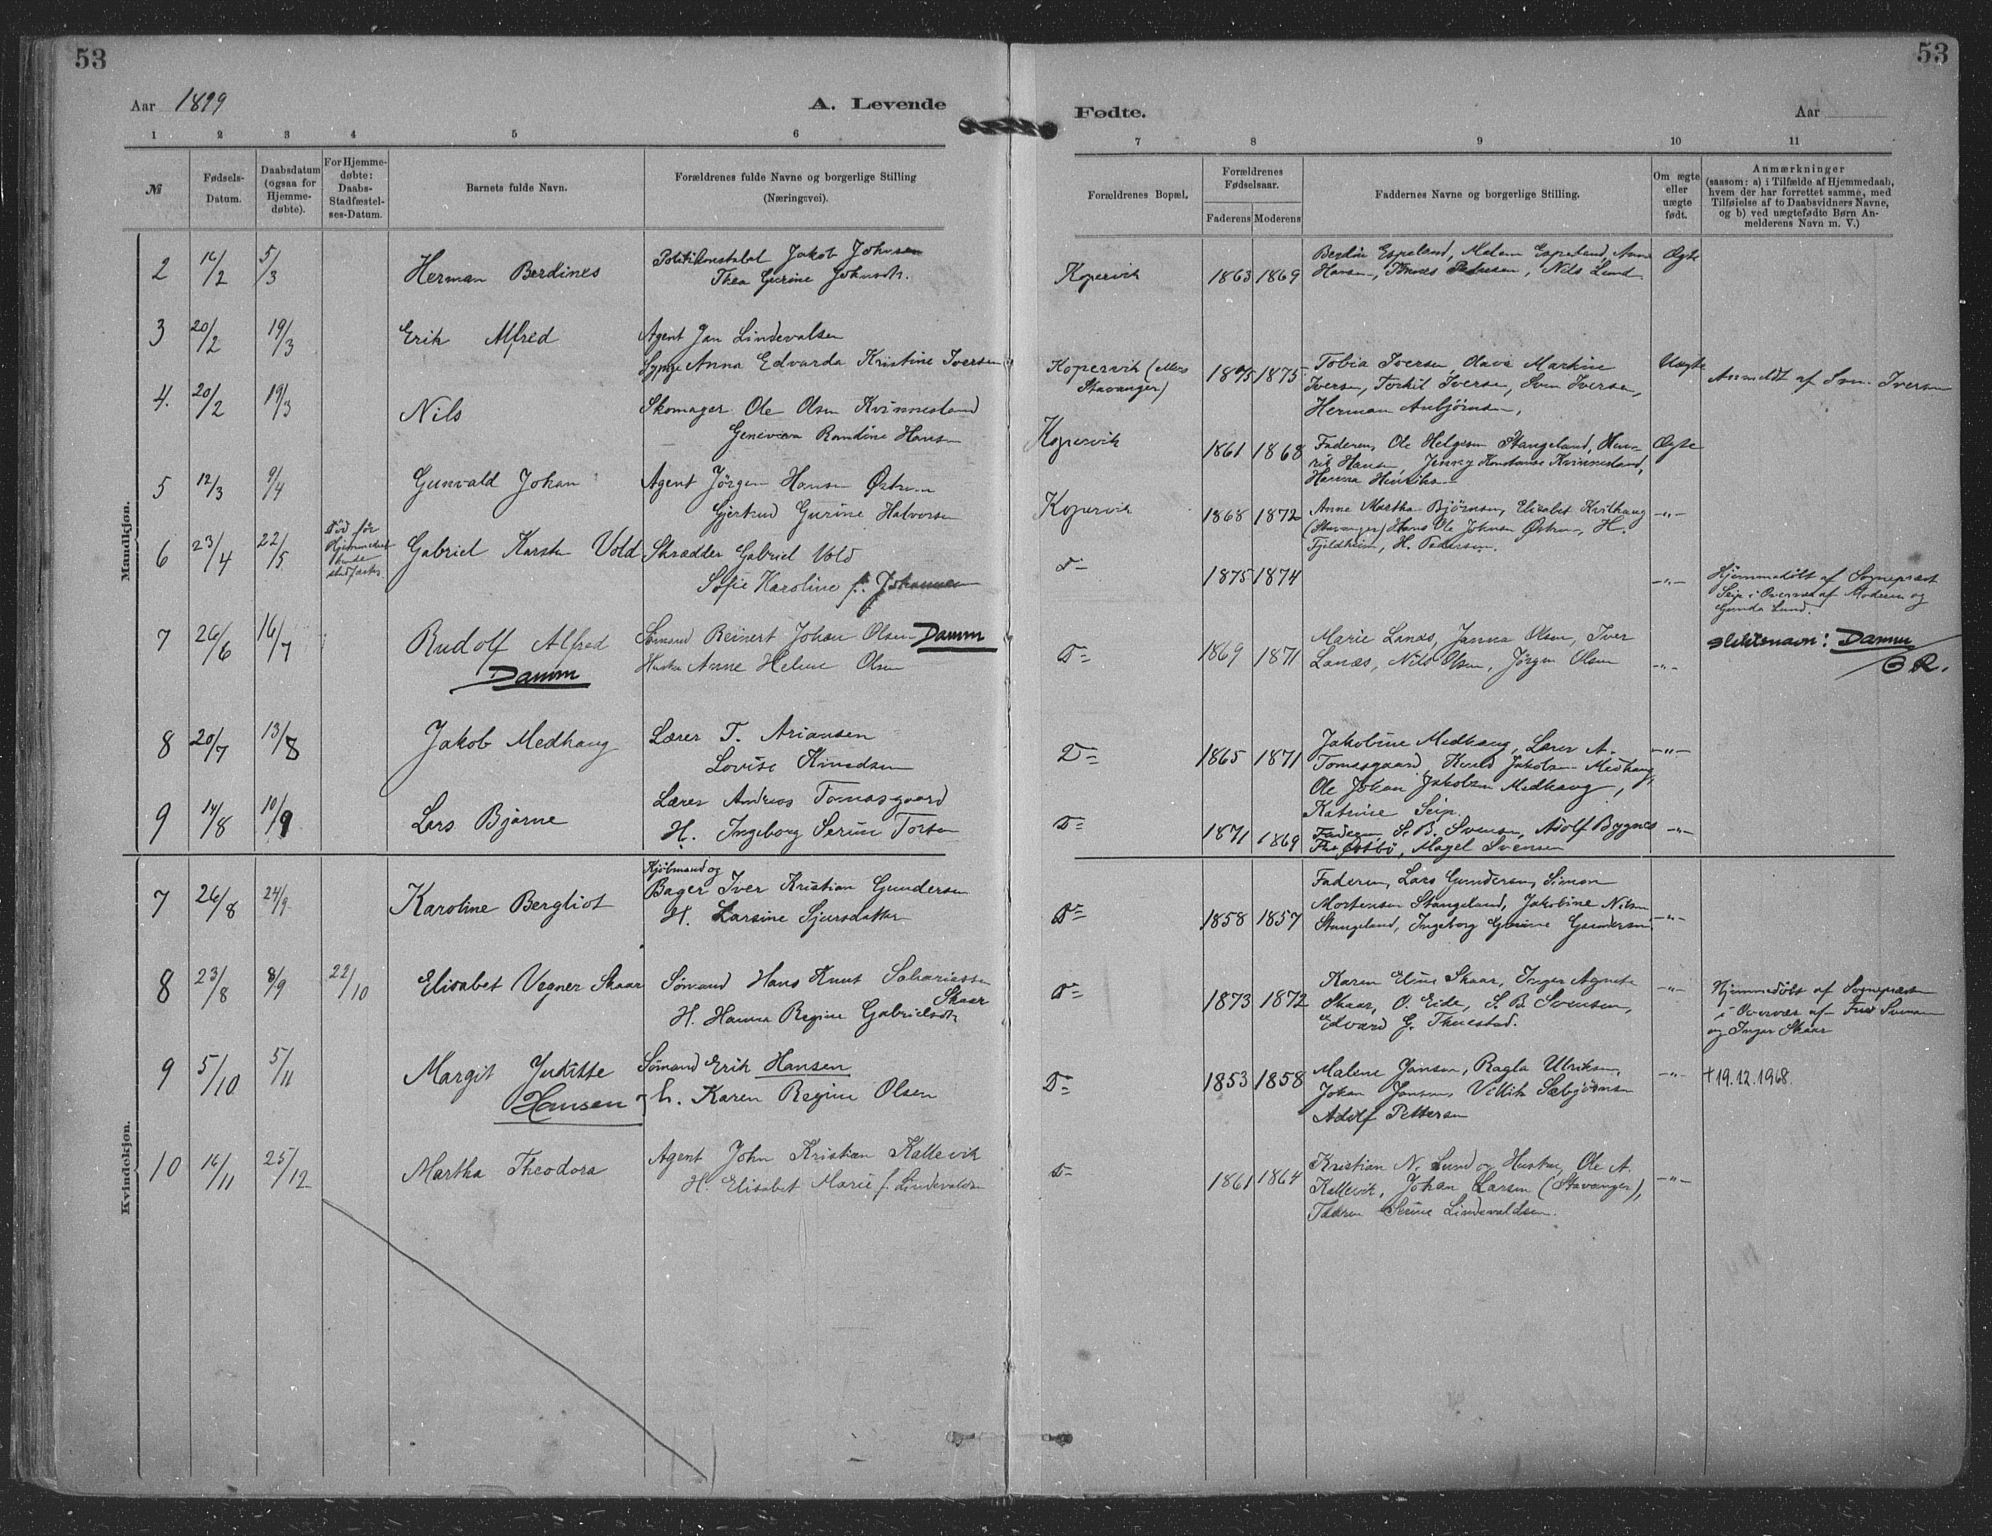 53
53
Aar 1899
A. Levende
Fødte.
Aar
1 2 3 4 5 6 7 8 9 10 11
№
Fødsels-
Datum.
Daabsdatum
(ogsaa for
Hjemme-
døbte).
For Hjemme-
døbte:
Daabs-
Stadfæstel-
ses-Datum.
Barnets fulde Navn.
Forældrenes fulde Navne og borgerlige Stilling
(Næringsvei).
Forældrenes Bopæl.
Forældrenes
Fødselsaar.
Faderens Moderens
Faddernes Navne og borgerlige Stilling.
Om ægte
eller
uægte
født.
Anmærkninger
(saasom: a) i Tilfælde af Hjemmedaab,
hvem der har forrettet samme, med
Tilføielse af to Daabsvidners Navne,
og b) ved uægtefødte Børn An-
melderens Navn m. V.)
Mandkjøn.
2 16/2 5/3 Herman Berdines
Politikonstabel Jakob Johnsen
Thea Gurine Johnsdtr.
Kopervik 1863 1869
Berdin Espeland, Malene Espeland, Anne
Hansen, Thores Pedersen, Nils Lund
Ægte
3 20/2 19/3 Erik Alfred
Agent Jan Lindevalsen
Sypige Anna Edvarda Kristine Iversen
Kopervik (
Stavanger)
1875 1875
Tobia Iversen, Olava Martine
Iversen, Torkil Iversen, Sven Iversen,
Herman Anbjørnsen,
Uægte
Anmeldt af Iversen
4. 20/2 19/3 Nils
Skomager Ole Olsen Kvinnesland
Geneviva Randine Hansen
Kopervik 1861 1868
Faderen, Ole Helgesen Stangeland, Hen-
rik Hansen, Jenny Konstanse Kvinnesland,
Hanna Henriksen
Ægte
5 12/3 9/4 Gunvald Johan
Agent Jørgen Hansen Østrem
Gjertrud Gurine Halvorsen
Kopervik 1868 1872
Anne Martha Bjørnsen, Elisabet Kvilhaug
(Stavanger) Hans Ole Johnsen Østrem, H.
Fjeldheim, H. Pedersen.
-"-
6 23/4 22/5
Død før
Hjemmedaab
stadfæstes
Gabriel Karsten Vold
Skrædder Gabriel Vold
Sofie Karoline f. Johannesen
D= 1875 1874 -"-
Hjemmedøbt af Sogneprest
Seip i Overvær af Moderen og
Gunda Lund.
7 26/6 16/7 Rudolf Alfred
Damm
Sømand Reinert Johan Olsen Damm
Hustru Anne Helene Olsen
D= 1869 1871
Marie Lanæs, Janna Olsen, Iver
Lanæs, Nils Olsen, Jørgen Olsen
-"-
Slektsnavn: Damm
OR.
8 20/7 13/8 Jakob Medhaug
Lærer T. Ariansen
Lovise Knudsen
D= 1865 1871
Jakobine Medhaug, Lærer A.
Tomasgaard, Knud Jakobsen Medhaug,
Ole Johan Jakobsen Medhaug,
Katrine Seip
-"-
9 14/8 10/9 Lars Bjarne
Lærer Andreas Tomasgaard
H. Ingeborg Serine Torsen
D= 1871 1869
Faderen, S. B. Svensen, Adolf Bygnes
Thea Østbø, Magel Svensen
-"-
Kvindekjøn.
7 26/8 24/9 Karoline Bergliot
Kjøbmand og
Bager Iver Kristian Gundersen
H. Larsine Sjursdatter
D= 1858 1857
Faderen, Lars Gundersen, Simon
Mortensen Stangeland, Jakobine Nilsen
Stangeland, Ingeborg Gurine Gundersen
-"-
8 23/8 8/9 22/10 Elisabet Vegner Skaar
Sømand Hans Knut Sakariassen
Skaar
H. Hanna Regine Gabrielsdtr
D= 1873 1872
Karen Eline Skaar, Inger Agnete
Skaar, O. Eide, S. B. Svensen,
Edvard G. Thuestad.
-"-
Hjemmedøbt af Sognepræsten
i Overvær af Fru Svensen
og Inger Skaar
9 5/10 5/11 Margit Jukitte
Hansen
Sømand Erik Hansen
h. Karen Regine Olsen
D= 1853 1858
Malene Jansen, Ragla Ulriksen,
Johan Jansen, Sæbjørnsen
Adolf Pettersen
-"-
† 19.12.1968.
10 16/11 25/12 Martha Theodora
Agent John Kristian Kallevik
H. Elisabet Marie f. Lindevaldsen
D= 1861 1864
Kristian N. Lund og Hustru, Ole A.
Kallevik, Johan Larsen (Stavanger),
Serine Lindevaldsen.
-"-